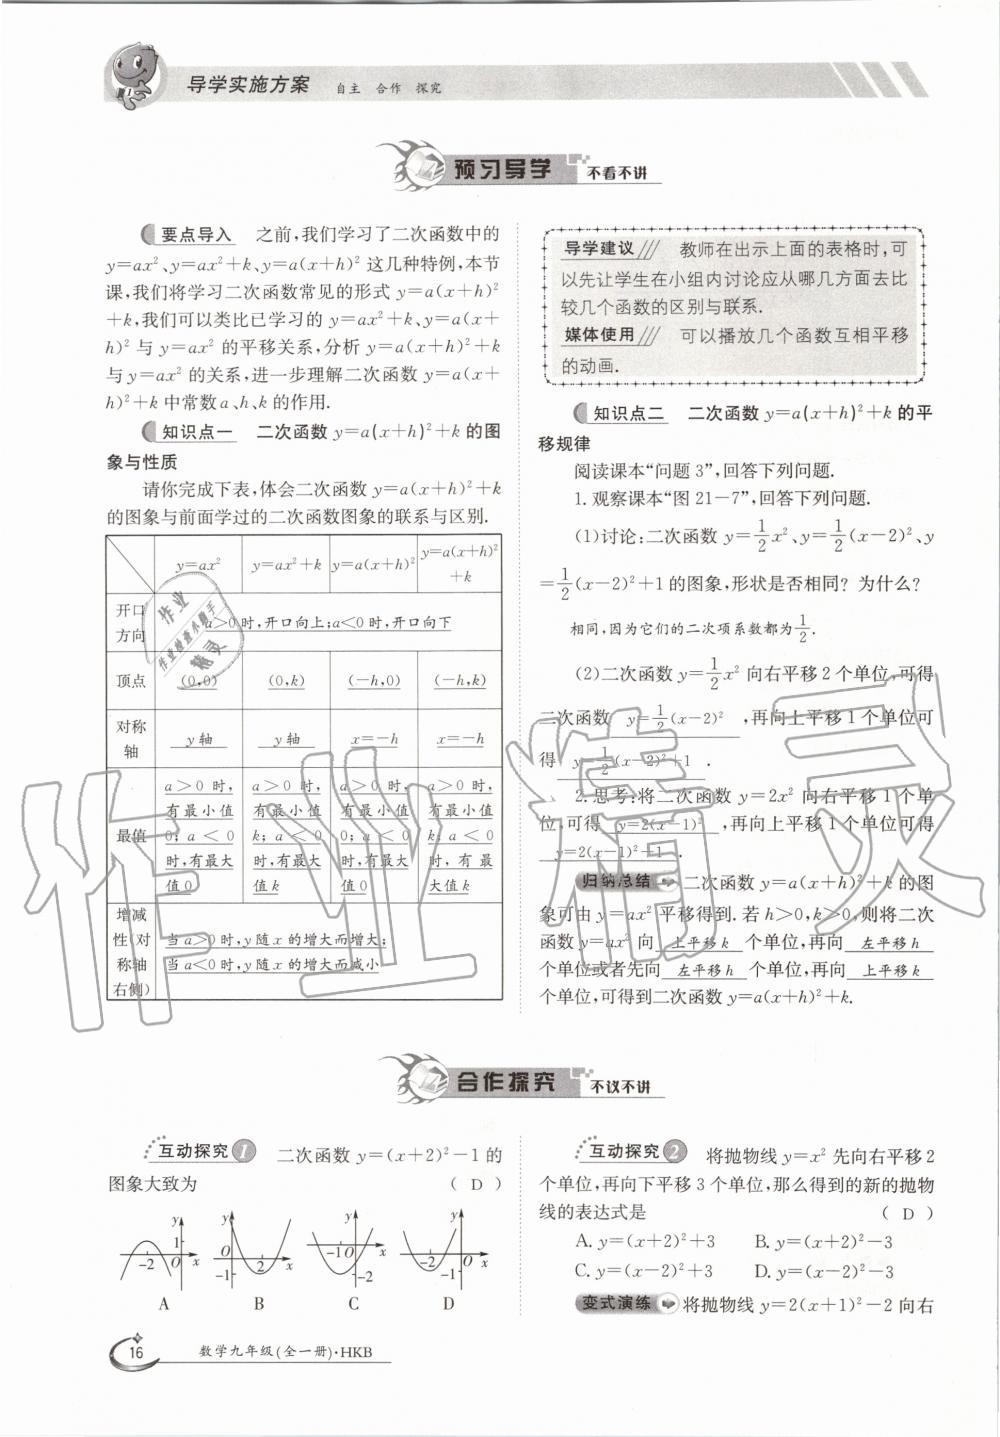 导学实施方案 自主 合作 探究
预习导学 不看不讲
要点导入 之前,我们学习了二次函数中的
y=ax²、y=ax²+k、y=a(x+h)² 这几种特例,本节
课,我们将学习二次函数常见的形式 y=a(x+h)²
+k,我们可以类比已学习的 y=ax²+k、y=a(x+
h)² 与 y=ax² 的平移关系,分析 y=a(x+h)²+k
与 y=ax² 的关系,进一步理解二次函数 y=a(x+
h)²+k 中常数 a、h、k 的作用.
知识点一 二次函数 y=a(x+h)²+k 的图
象与性质
请你完成下表,体会二次函数 y=a(x+h)²+k
的图象与前面学过的二次函数图象的联系与区别.
y=ax² y=ax²+k y=a(x+h)² y=a(x+h)²
+k
开口
方向
a>0 时,开口向上;a<0 时,开口向下
顶点 (0,0) (0,k) (-h,0) (-h,k)
对称
轴
y 轴 y 轴 x=-h x=-h
最值
a>0 时,
有最小值
0; a<0
时,有最大
值 0
a>0 时,
有最小值
k; a<0
时,有最大
值 k
a>0 时,
有最小值
0; a<0
时,有最大
值 0
a>0 时,
有最小值
k; a<0
时,有最
大值 k
增减
性(对
称轴
右侧)
当 a>0 时,y 随 x 的增大而增大;
当 a<0 时,y 随 x 的增大而减小
导学建议 教师在出示上面的表格时,可
以先让学生在小组内讨论应从哪几方面去比
较几个函数的区别与联系.
媒体使用 可以播放几个函数互相平移
的动画.
知识点二 二次函数 y=a(x+h)²+k 的平
移规律
阅读课本“问题 3”,回答下列问题.
1. 观察课本“图 21-7”,回答下列问题.
(1)讨论:二次函数 y=1/2x²、y=1/2(x-2)²、y
=1/2(x-2)²+1 的图象,形状是否相同? 为什么?
相同,因为它们的二次项系数都为1/2.
(2)二次函数 y=1/2x² 向右平移 2 个单位,可得
二次函数 y=1/2(x-2)² ,再向上平移 1 个单位可
得 y=1/2(x-2)²+1 .
2. 思考:将二次函数 y=2x² 向右平移 1 个单
位,可得 y=2(x-1)² ,再向上平移 1 个单位可得
y=2(x-1)²+1 .
归纳总结 二次函数 y=a(x+h)²+k 的图
象可由 y=ax² 平移得到. 若 h>0,k>0,则将二次
函数 y=ax² 向 上平移 k 个单位,再向 左平移 h
个单位或者先向 左平移 h 个单位,再向 上平移 k
个单位,可得到二次函数 y=a(x+h)²+k.
合作探究 不议不讲
互动探究 1 二次函数 y=(x+2)²-1 的
图象大致为 ( D )
y 1 -2 O x
y O 2 x -1
y -1 O x -2
y -2 O x -1
A B C D
互动探究 2 将抛物线 y=x² 先向右平移 2
个单位,再向下平移 3 个单位,那么得到的新的抛物
线的表达式是 ( D )
A. y=(x+2)²+3 B. y=(x+2)²-3
C. y=(x-2)²+3 D. y=(x-2)²-3
变式演练 将抛物线 y=2(x+1)²-2 向右
16 数学九年级(全一册)·HKB
作业
作业检查小助手
精灵
作业精灵